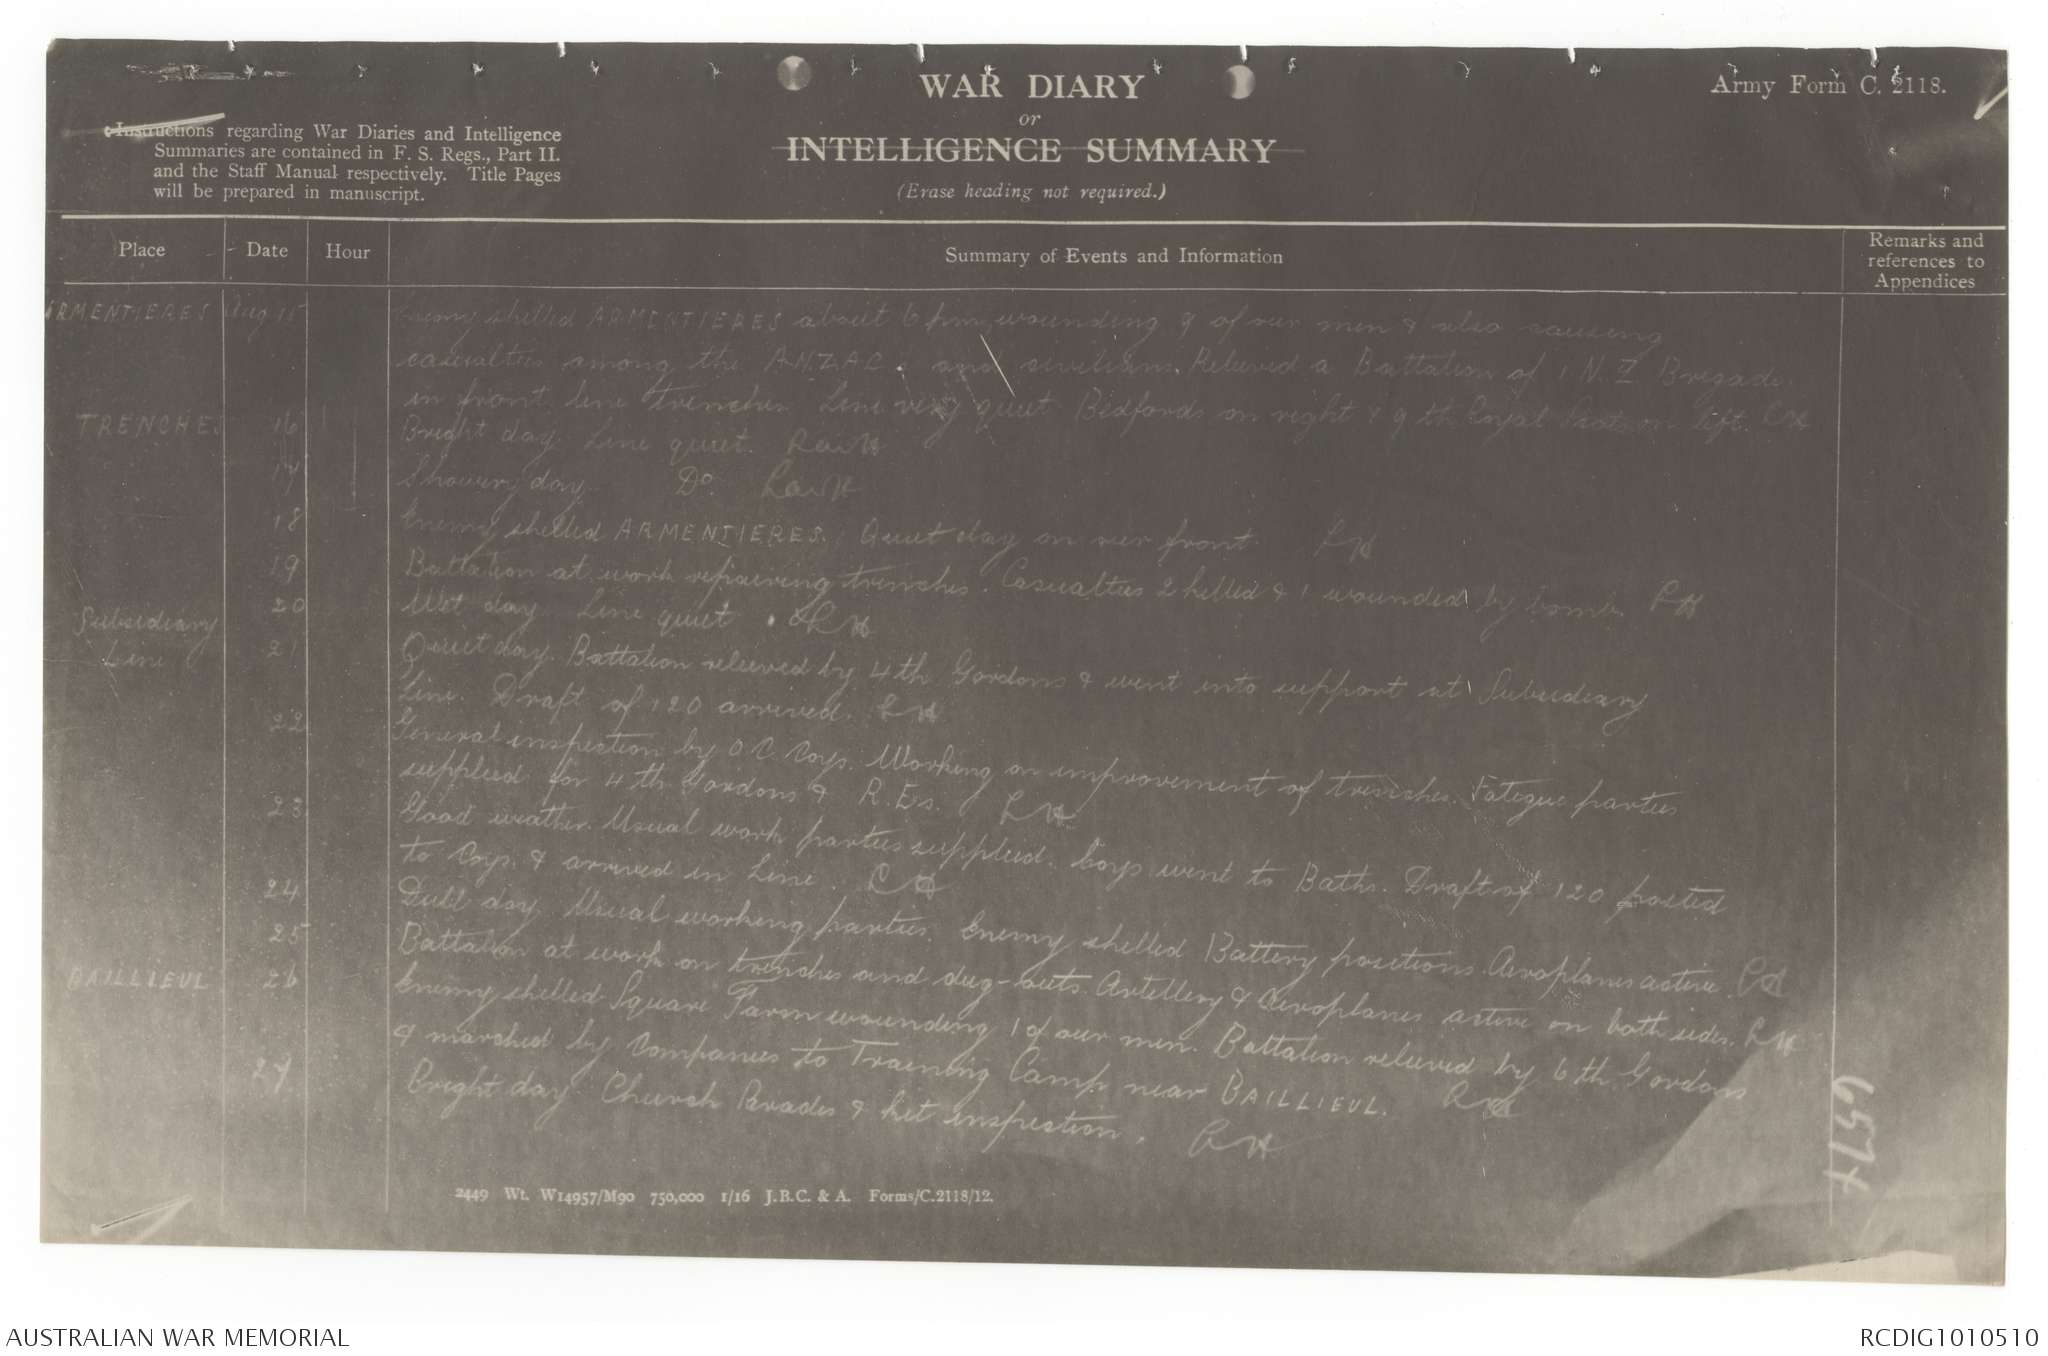 WAR DIARY
or
INTELLIGENCE SUMMARY
(Erase heading not required.)
Army Form C. 2118.
Instructions regarding War Diaries and Intelligence
Summaries are contained in F. S. Regs., Part II.
and the Staff Manual respectively. Title Pages
will be prepared in manuscript.
Place Date Hour Summary of Events and Information Remarks and references to Appendices
ARMENTIERES Aug 15 Enemy shelled ARMENTIERES about 6 pm, wounding 9 of our men & also causing
casualties among the A.N.Z.A.C. and civilians. Relieved a Battalion of 1 N.Z Brigade
in front line trenches. Line very quiet. Bedfords on right & 9th Royal Scots on left.
TRENCHES 16 Bright day. Line quiet.
17 Showery day. Do.
18 Enemy shelled ARMENTIERES. Quiet day on our front
19 Battalion at work repairing trenches. Casualties 2 killed & 1 wounded by bomb.
20 Wet day. Line quiet.
Subsidiary Line 21 Quiet day. Battalion relieved by 4th Gordons & went into support at Subsidiary
Line. Draft of 120 arrived.
22 General inspection by O.C. Coys. Working on improvement of trenches. Fatigue parties
supplied for 4th Gordons & R.Es.
23 Good weather. Usual work parties supplied. Coys went to Baths. Draft of 120 posted
to Coys. & arrived in Line.
24 Dull day. Usual working parties. Enemy shelled Battery positions. Aeroplanes active.
25 Battalion at work on trenches and dug-outs. Artillery & Aeroplanes active on both sides.
BAILLIEUL 26 Enemy shelled Square Farm wounding 1 of our men. Battalion relieved by 6th Gordons
& marched by Companies to Training Camp near BAILLIEUL.
27 Bright day. Church Parades & kit inspection.
2449 Wt. W14957/M90 750,000 1/16 J.B.C. & A. Forms/C.2118/12.
AUSTRALIAN WAR MEMORIAL
RCDIG1010510